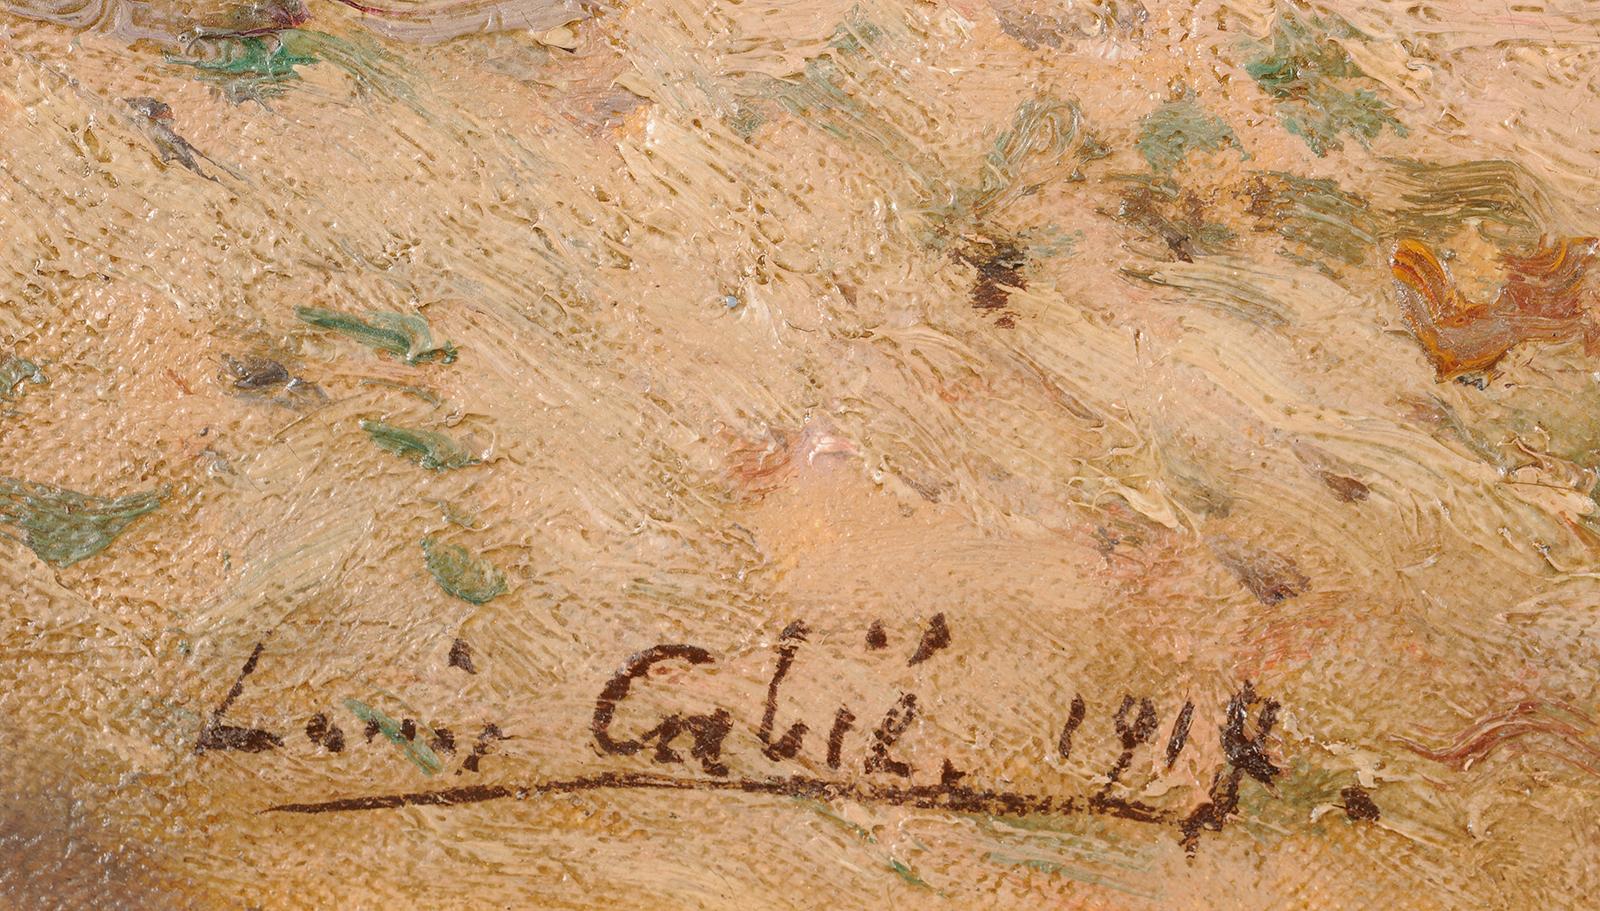 Louis Cabié. 1914.